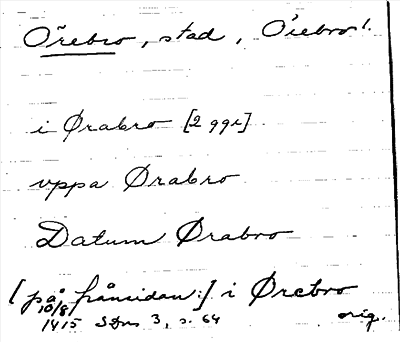 Örebro, stad, Örebro l.
i Ørabro [2 ggr]
vppa Ørabro
Datum Ørabro
[på frånsidan:] i Ørebro
10/8 1415 SDns 3, s. 64 orig.